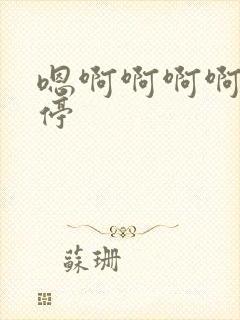 嗯啊啊啊啊
停
蘇珊